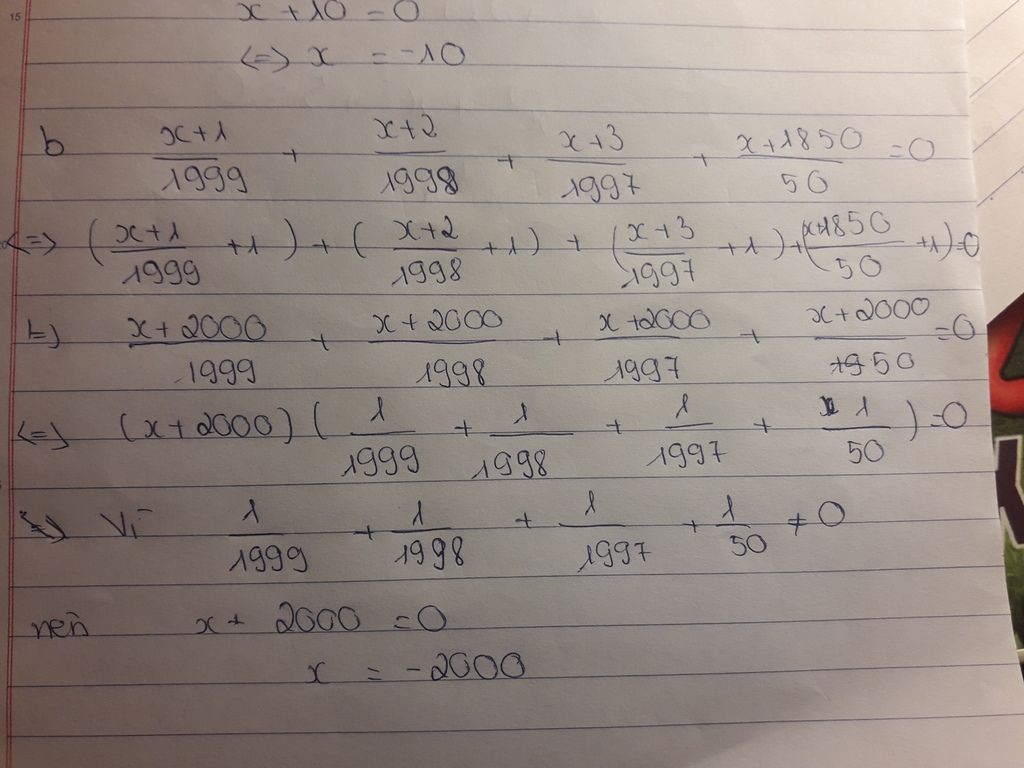 15
x + 10 = 0
<=> x = -10
b (x+1)/1999 + (x+2)/1998 + (x+3)/1997 + (x+1850)/50 = 0
<=> ((x+1)/1999 + 1) + ((x+2)/1998 + 1) + ((x+3)/1997 + 1) + ((x+1850)/50 + 1) = 0
(x+2000)/1999 + (x+2000)/1998 + (x+2000)/1997 + (x+2000)/50 = 0
<=> (x+2000)(1/1999 + 1/1998 + 1/1997 + 1/50) = 0
Vì 1/1999 + 1/1998 + 1/1997 + 1/50 ≠ 0
nên x + 2000 = 0
x = -2000